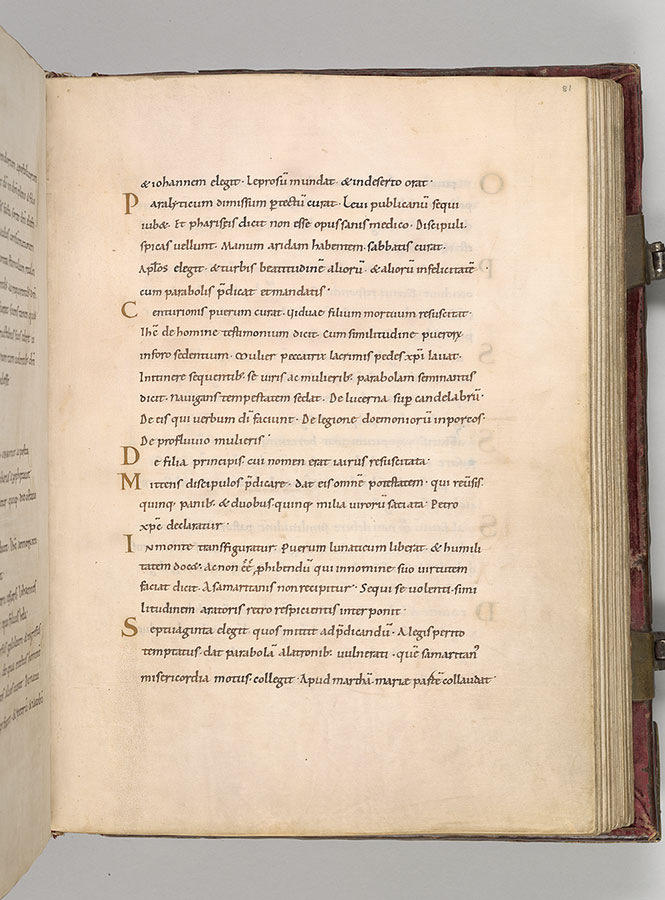 81
& iohannem elegit · Leprosū mundat & indeserto orat ·
Paralyticum dimissum p̄ tectū curat · Levi publicanū sequi
iub& · Et phariseis dicit non esse opus sanis medico · Discipuli
spicas vellunt · Manum aridam habentem sabbatis curat ·
Apłos elegit · & turbis beatitudinē aliorū · & aliorū infelicitatē ·
cum parabolis p̄dicat et mandatis ·
Centurionis puerum curat · Viduae filium mortuum resuscitat ·
Ihc̄ de homine testimonium dicit · Cum similitudine pueroꝝ
inforo sedentium · Mulier peccatrix lacrimis pedes xp̄i lavat ·
Initinere sequentib; se viris ac mulierib; parabolam seminantis
dicit · Navigans tempestatem sedat · De lucerna sup̄ candelabrū ·
De eis qui verbum dī faciunt · De legione doemoniorū inporcos ·
De profluvio mulieris ·
De filia principis cui nomen erat iairus resuscitata ·
Mittens discipulos p̄dicare · dat eis omnē potestatem · qui reūsis
quinq; panib; & duobus · quinq; milia virorū satiata · Petro
xp̄c declaratur ·
In monte transfiguratur · Puerum lunaticum liberat · & humili
tatem doc& · Ac non eē̄ ꝓhibendū qui innomine suo virtutem
faciat dicit · A samaritanis non recipitur · Sequi se volenti · simi
litudinem aratoris retro respicientis interponit ·
Septuaginta elegit quos mittit adp̄dicandū · A legis perito
temptatus · dat parabolā alatronib; vulnerati · quē samaritanꝰ
misericordia motus · collegit · Apud marthā · mariae collaudat ·